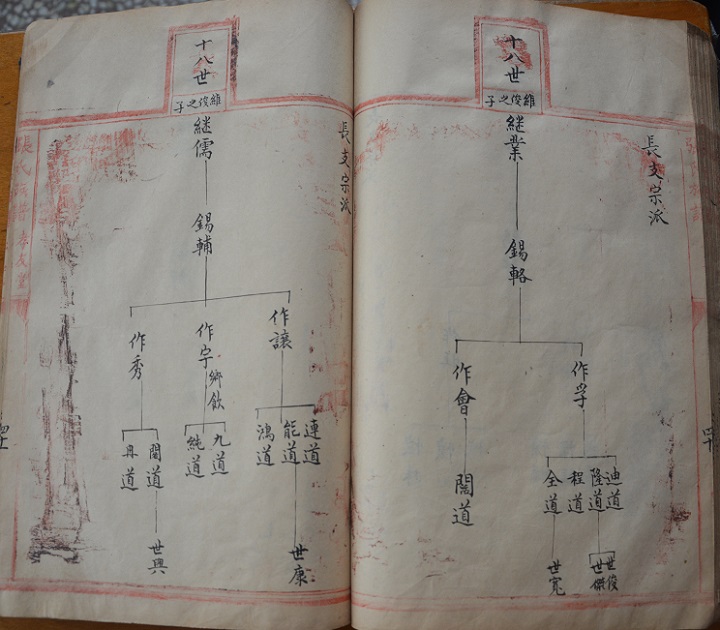 十八世
維俊之子
長支宗派
繼業
錫輅
作孚
作會
迪道
隆道
程道
全道
闇道
世俊
世傑
世寬
十八世
維俊之子
長支宗派
繼儒
錫輔
作讓
作字
鄉飲
作秀
連道
能道
鴻道
九道
純道
閣道
冉道
世康
世興